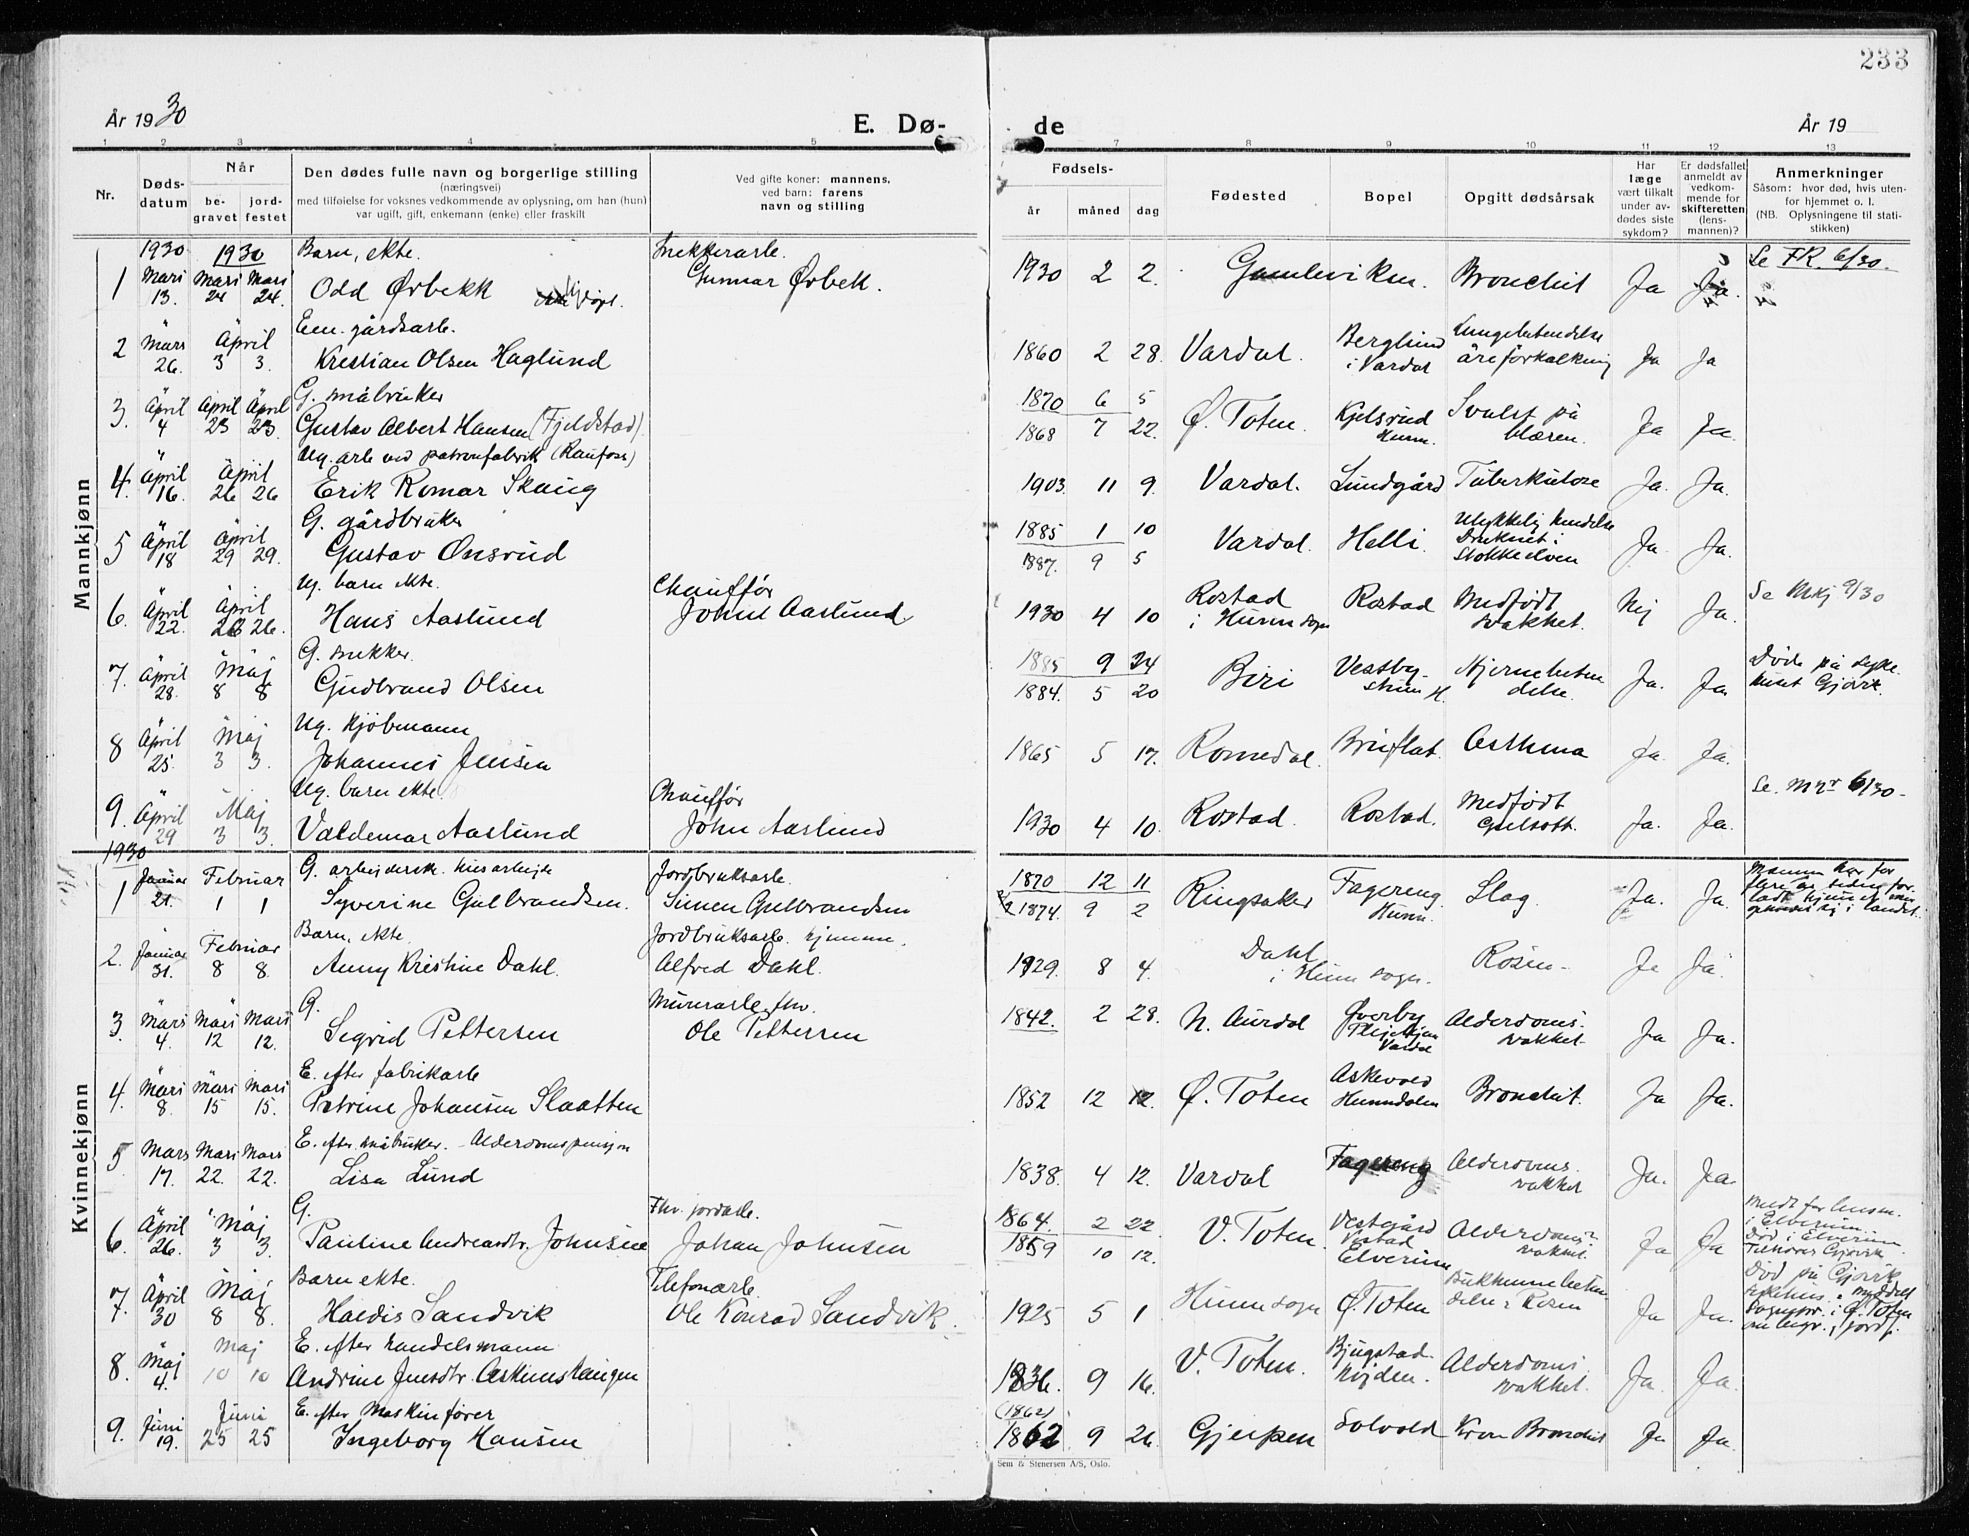 233
År 1930
E. Dø-
de
År 19
1 2 3 4 5 7 8 9 10 11 12 13
Nr.
Døds-
datum
Når
be-
gravet
jord-
festet
Den dødes fulle navn og borgerlige stilling
(næringsvei)
med tilføielse for voksnes vedkommende av oplysning, om han (hun)
var ugift, gift, enkemann (enke) eller fraskilt
Ved gifte koner: mannens,
ved barn: farens
navn og stilling
Fødsels-
år måned dag
Fødested
Bopel
Opgitt dødsårsak
Har
læge
vært tilkalt
under av-
dødes siste
sykdom?
Er dødsfallet
anmeldt av
vedkom-
mende for
skifteretten
(lens-
mannen)?
Anmerkninger
Såsom: hvor død, hvis uten-
for hjemmet o. l.
(NB. Oplysningene til stati-
stikken)
Mannkjønn
1930 1930 Barn, ekte. Snekkerarb. Se FR. 6/30.
1 Mars 13. Mars 24 Mars 24. Odd Ørbekk døpt. Gunnar Ørbek. 1930 2 2. Bronchit Ja Ja.
Em. gårdsarb.
2 Mars 26. April 3 3. Kristian Olsen Haglund 1860 2 28. Vardal. Berglund i Vardal Lungebetendelse åreforkalkning Ja Ja
G. småbruker
3. April 4 April 23 April 23. Gustav Albert Hansen (Fjeldstad) 1870 6 5 1868 7 22. Ø. Toten. Kjelsrud Hunn. Svulst på blæren. Ja Ja.
Ug. arb ved patronfabrik (Raufoss)
4. April 16. April 26 26 Erik Romar Skaug 1903. 11 9. Vardal. Lundgård Tuberkulose Ja. Ja.
G. gårdbruker
5 April 18 April 29 29. Gustav Onsrud 1885 1 10 1887. 9 5 Vardal. Helli. Ulykkelig hendelse Druknet i Stokkeelven Ja. Ja.
Ug. barn ekte. Chauffør Se Mkj 9/30
6. April 22. April 26 26. Hans Aaslund John Aaslund. 1930 4 10 Rostad i Hunn sogn Rostad Medfødt svakhet. Nej Ja.
G. snekker.
7. April 28. Maj 8 8 Gudbrand Olsen 1885 9 24 1884. 5 20 Biri Vestby- Hjernebeten delse Ja. Ja Døde på syke huset Gjøvik.
Ug. Kjøbmann
8 April 25. Maj 3 3. Johannes Jensen 1865 5 17. Romedal. Bruflat. Asthma Ja. Ja.
Ug. barn ekte. Chauffør Se. M nr 6/30-
9. April 29 Maj 3 3. Valdemar Aaslund John Aaslund 1930 4 10. Rostad. Rostad. Medfødt Gulsott. Ja. Ja.
Kvinnekjønn
1930
G. arbeidersk. husarbejde Jordbruksarb. Mannen har for
1 Januar 21. Februar 1 1 Syverine Gulbrandsen. Simen Gulbrandsen 1870 12 11 1874. 9 2 Ringsaker Fagereng Hunn. Slag. Ja. Ja. flere år siden for- ladt hjemmet i landet.
Barn, ekte. Jordbruksarb. hjemme.
2. Januar 31. Februar 8 8. Anny Kristine Dahl. Alfred Dahl. 1929. 8 4. Dahl i Hunn sogn. Rosen- Ja Ja
G. Murerarb. fhv.
3 Mars 4. Mars 12 Mars 12. Sigrid Pettersen Ole Pettersen 1842. 2 28. N. Aurdal Øverby Plejehjem Vardal Alderdoms- svakhet Ja Ja.
E. efter fabrikarb
4. Mars 8. Mars 15 Mars 15. Petrine Johansen Slaatten 1852 12 12. Ø. Toten Askevold Hunndalen Bronchit. Ja Ja.
E. efter småbruker. - Alderdomspensjon
5 Mars 17. Mars 22. Mars 22. Lisa Lund 1838. 4 12. Vardal Fagereng Alderdoms- svakhet Ja. Ja.
G. Fhv. jordarb.
6. April 26. Maj 3 3. Pauline Andreasdtr. Johnsen Johan Johnsen 1864. 2 22. 1859 10 12. V. Toten. Vestgård Elverum Alderdoms- svakhet. Ja Ja i Elverum. Død i Elverum. Tilhører Gjøvik
Barn ekte. Telefonarb.
7. April 30 Maj 8 8. Haldis Sandvik Ole Konrad Sandvik. 1925 5 1 Hunn sogn Ø. Toten Bukhinnebeten delse: Rosen Ja Ja. Død på Gjøvik sykehus. meddelt Sognepr. i Ø. Toten om begr. i jordf.
E. efter handelsmann
8. Maj 4. Maj 10 10 Andrine Jensdtr. Askimshaugen 1836. 9 16. V. Toten. Bjugstad højden. Alderdoms- svakhet. Ja. Ja.
E. efter Maskinfører
9. Juni 19. Juni 25 25 Ingeborg Hansen (1862) 1862 9 26 Gjerpen Solvold Kron Bronchit Ja Ja.
Sem & Stenersen A/S, Oslo.